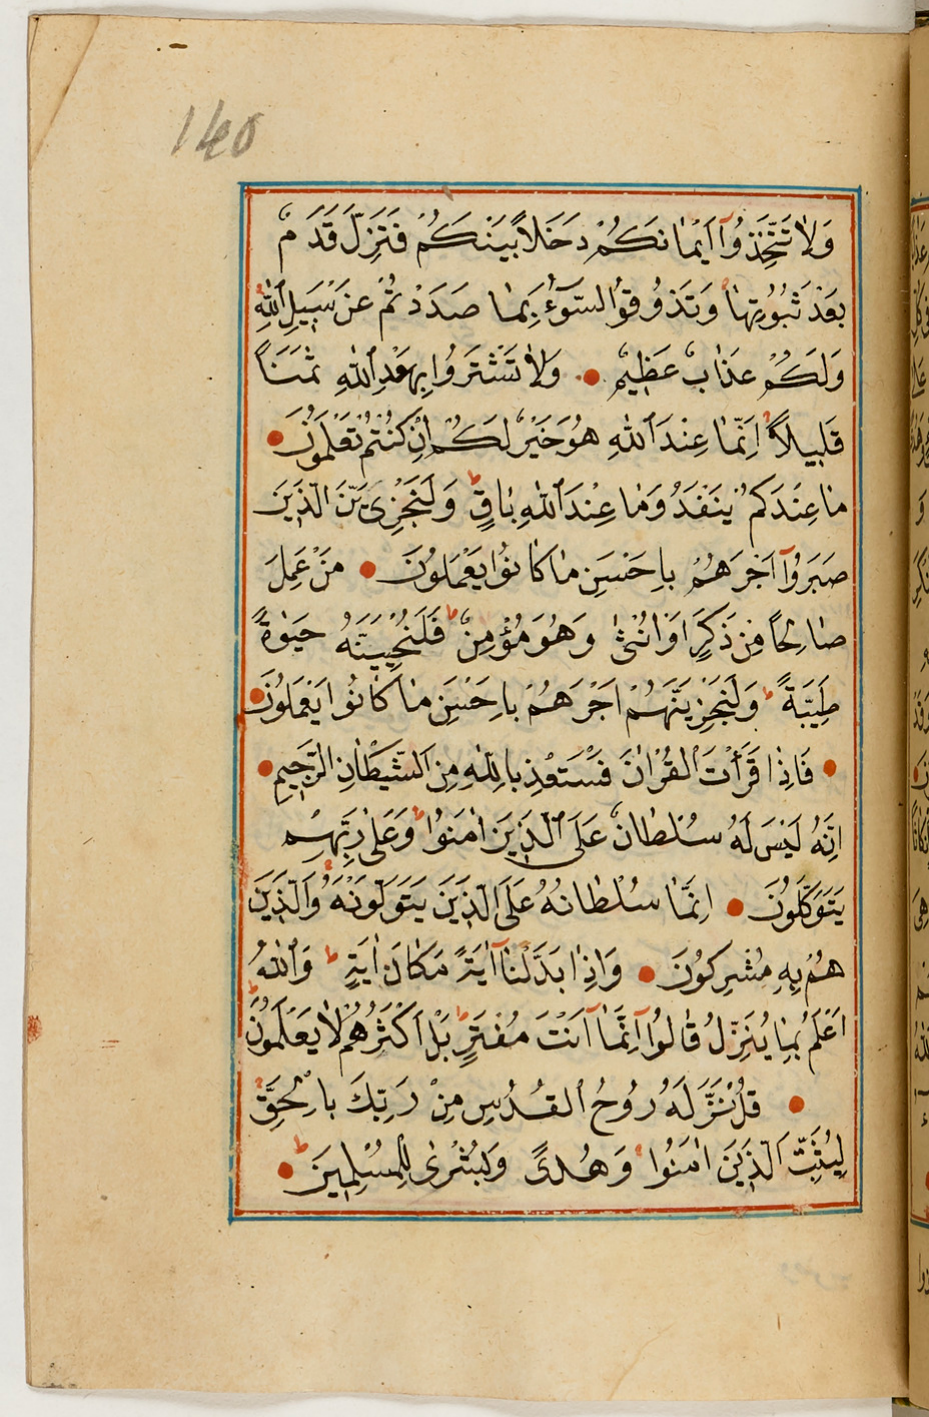 140
وَلَا تَتَّخِذُوٓا اَيْمَانَكُمْ دَخَلاً بَيْنَكُمْ فَتَزِلَّ قَدَمٌ
بَعْدَ ثُبُوتِهَا وَتَذُوقُوا السُّوٓءَ بِمَا صَدَدْتُمْ عَنْ سَبِيلِ اللّٰهِ
وَلَكُمْ عَذَابٌ عَظِيمٌ وَلَا تَشْتَرُوا بِعَهْدِ اللّٰهِ ثَمَنًا
قَلِيلاً اِنَّمَا عِنْدَ اللّٰهِ هُوَ خَيْرٌ لَكُمْ اِنْ كُنْتُمْ تَعْلَمُونَ
مَا عِنْدَكُمْ يَنْفَدُ وَمَا عِنْدَ اللّٰهِ بَاقٍ وَلَنَجْزِيَنَّ الَّذِينَ
صَبَرُوٓا اَجْرَهُمْ بِاَحْسَنِ مَا كَانُوا يَعْمَلُونَ مَنْ عَمِلَ
صَالِحًا مِنْ ذَكَرٍ اَوْ اُنْثٰى وَهُوَ مُؤْمِنٌ فَلَنُحْيِيَنَّهُ حَيٰوةً
طَيِّبَةً وَلَنَجْزِيَنَّهُمْ اَجْرَهُمْ بِاَحْسَنِ مَا كَانُوا يَعْمَلُونَ
فَاِذَا قَرَأْتَ الْقُرْاٰنَ فَسْتَعِذْ بِاللّٰهِ مِنَ الشَّيْطَانِ الرَّجِيمِ
اِنَّهُ لَيْسَ لَهُ سُلْطَانٌ عَلَى الَّذِينَ اٰمَنُوا وَعَلٰى رَبِّهِمْ
يَتَوَكَّلُونَ اِنَّمَا سُلْطَانُهُ عَلَى الَّذِينَ يَتَوَلَّوْنَهُ وَالَّذِينَ
هُمْ بِهِ مُشْرِكُونَ وَاِذَا بَدَّلْنَآ اٰيَةً مَكَانَ اٰيَةٍ وَاللّٰهُ
اَعْلَمُ بِمَا يُنَزِّلُ قَالُوٓا اِنَّمَآ اَنْتَ مُفْتَرٍ بَلْ اَكْثَرُهُمْ لَا يَعْلَمُونَ
قُلْ نَزَّلَهُ رُوحُ الْقُدُسِ مِنْ رَبِّكَ بِالْحَقِّ
لِيُثَبِّتَ الَّذِينَ اٰمَنُوا وَهُدًى وَبُشْرٰى لِلْمُسْلِمِينَ